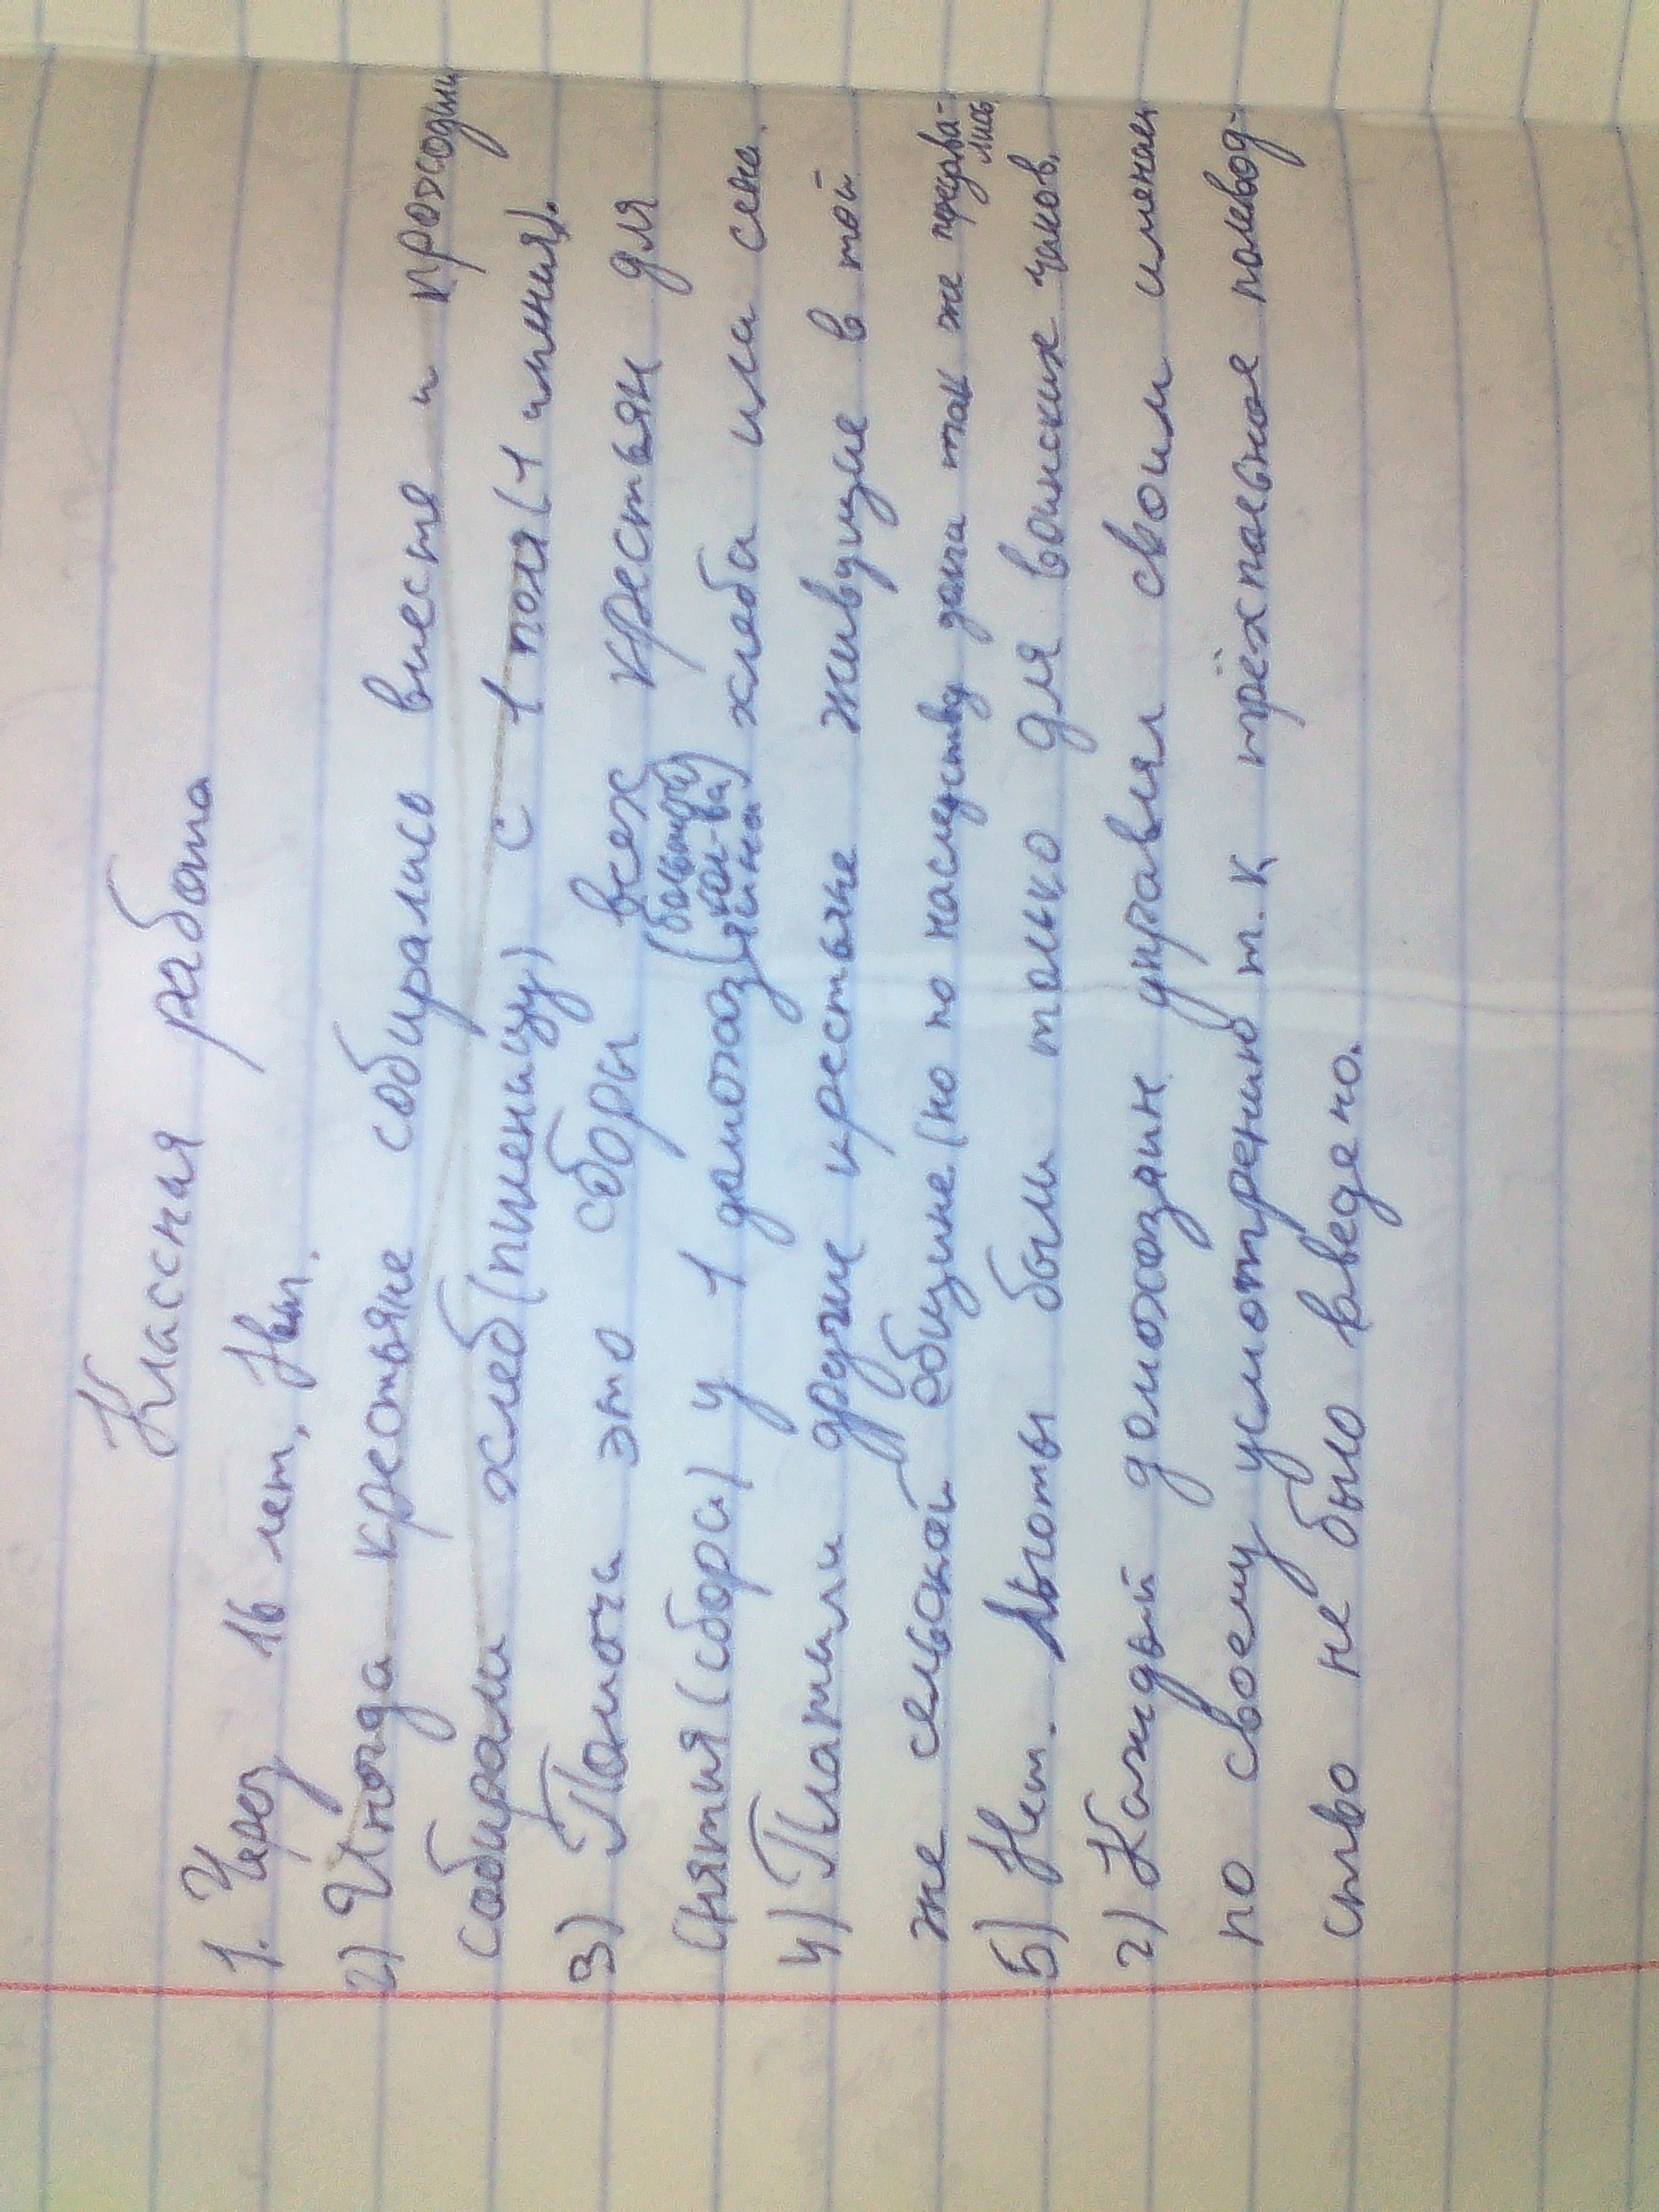 Классная работа
1. Через 16 лет, Нет.
2) Иногда крестьяне собирались вместе и проходили
собирали хлеб (пшеницу) с 1 поля (1 имения).
3) Помочи это сборы всех крестьян для
снятия (сбора) у 1 домохоз (большой кол-ва) яина хлеба или сена.
4) Платили другие крестьяне живущие в той
же сельской общине (но по наследству долги так же передава-лись
5) Нет. Льготы были только для воинских чинов.
2) Каждый домохозяин управлял своим имением
по своему усмотрению т.к трёхпольное полевод-
ство не было введено.